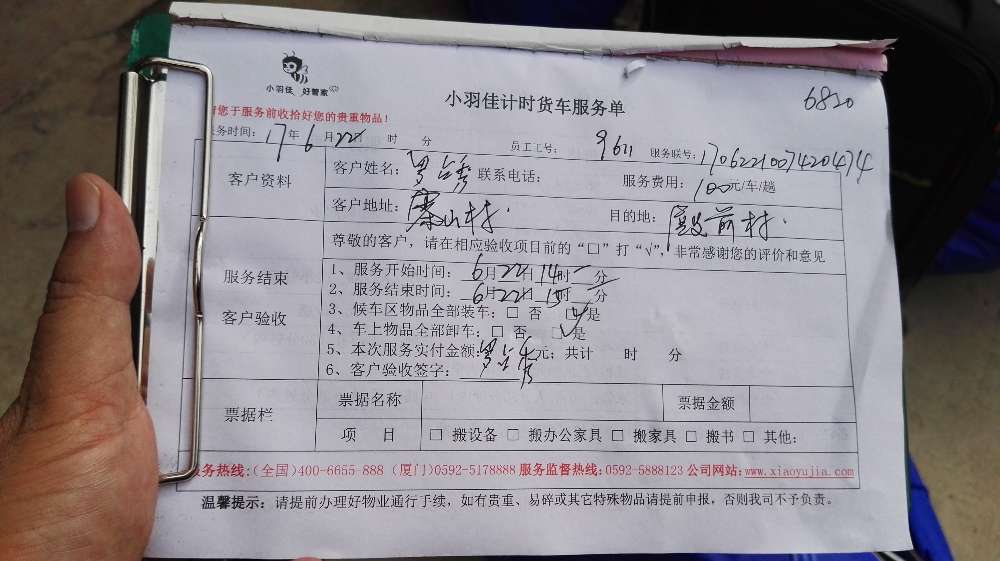 小羽佳 好管家
小羽佳计时货车服务单
6820
您于服务前收拾好您的贵重物品！
务时间：17年6月22 时 分 员工工号： 9621 服务联号：1706221007420474
客户资料
客户姓名：罗 秀 联系电话： 服务费用：100元/车/趟
客户地址：寨山村. 目的地：殿前村.
尊敬的客户，请在相应验收项目前的“□”打“√”，非常感谢您的评价和意见
服务结束
客户验收
1、服务开始时间： 6月22日14时 分
2、服务结束时间： 6月22日15时 分
3、候车区物品全部装车：□ 否 □是
4、车上物品全部卸车：□ 否 □是
5、本次服务实付金额： 元；共计 时 分
6、客户验收签字：
票据栏
票据名称 票据金额
项 目 □ 搬设备 □ 搬办公家具 □ 搬家具 □ 搬书 □ 其他：
服务热线：（全国）400-6655-888（厦门）0592-5178888 服务监督热线：0592-5888123 公司网站：www.xiaoyujia.com
温馨提示：请提前办理好物业通行手续，如有贵重、易碎或其它特殊物品请提前申报，否则我司不予负责。